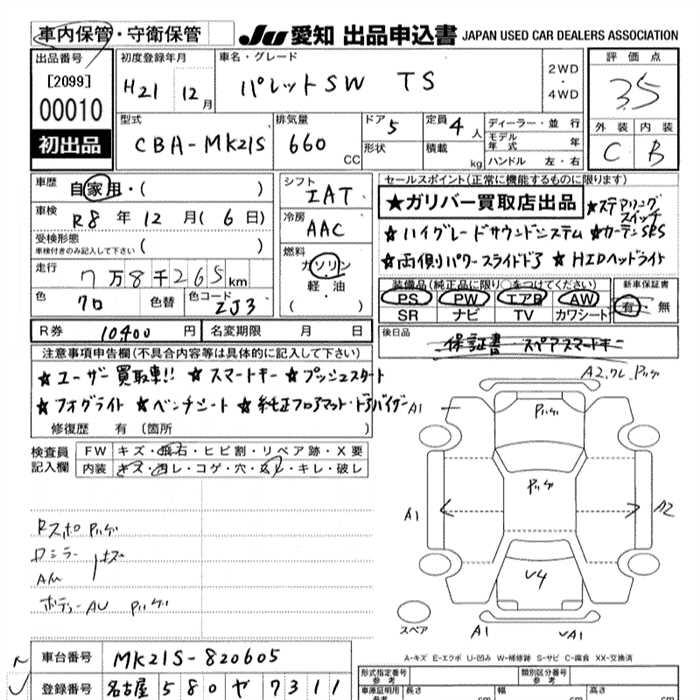 車内保管・守衛保管
JU 愛知 出品申込書 JAPAN USED CAR DEALERS ASSOCIATION
出品番号
[2099]
00010
初出品
初度登録年月
H21 12月
車名・グレード
パレットSW TS
2WD
・
4WD
評価点
3.5
型式
CBA-MK21S
排気量
660 CC
ドア 5
形状
定員 4人
積載 kg
ディーラー・並行
モデル年式 年
ハンドル 左・右
外装 内装
C B
車歴
自家用・( )
車検
R8年12月(6日)
受検形態
車検付きのみ記入して下さい ( )
走行
7万8千265km
色
クロ
色替
色コード
ZJ3
シフト
IAT
冷房
AAC
燃料
ガソリン
軽油
( )
セールスポイント(正常に機能するものに限ります)
★ガリバー買取店出品
★ステアリングスイッチ
★ハイグレードサウンドシステム ★カーテンSRS
★両側パワースライドドア ★HIDヘッドライト
装備品(純正品に限り○をつけてください)
PS PW エアB AW
SR ナビ TV カワシート
新車保証書
有・無
R券 10,400円
名変期限 月 日
後日品
保証書 スペアスマートキー
注意事項申告欄(不具合内容等は具体的に記入して下さい)
★ユーザー買取車!! ★スマートキー ★プッシュスタート
★フォグライト ★ベンチシート ★純正フロアマット・ドアバイザー
修復歴 有(箇所 )
検査員記入欄
FW キズ・飛石・ヒビ割・リペア跡・X要
内装 キズ・汚レ・コゲ・穴・スレ・キレ・破レ
A1
A1
A2
V4
A1
A1
スペア
A-キズ E-エクボ U-凹み W-補修跡 S-サビ C-腐食 XX-交換済
車台番号 MK21S-820605
登録番号 名古屋 580 ヤ 7311
形式指定番号
参考
類別区分番号
参考
長さ
幅
高さ